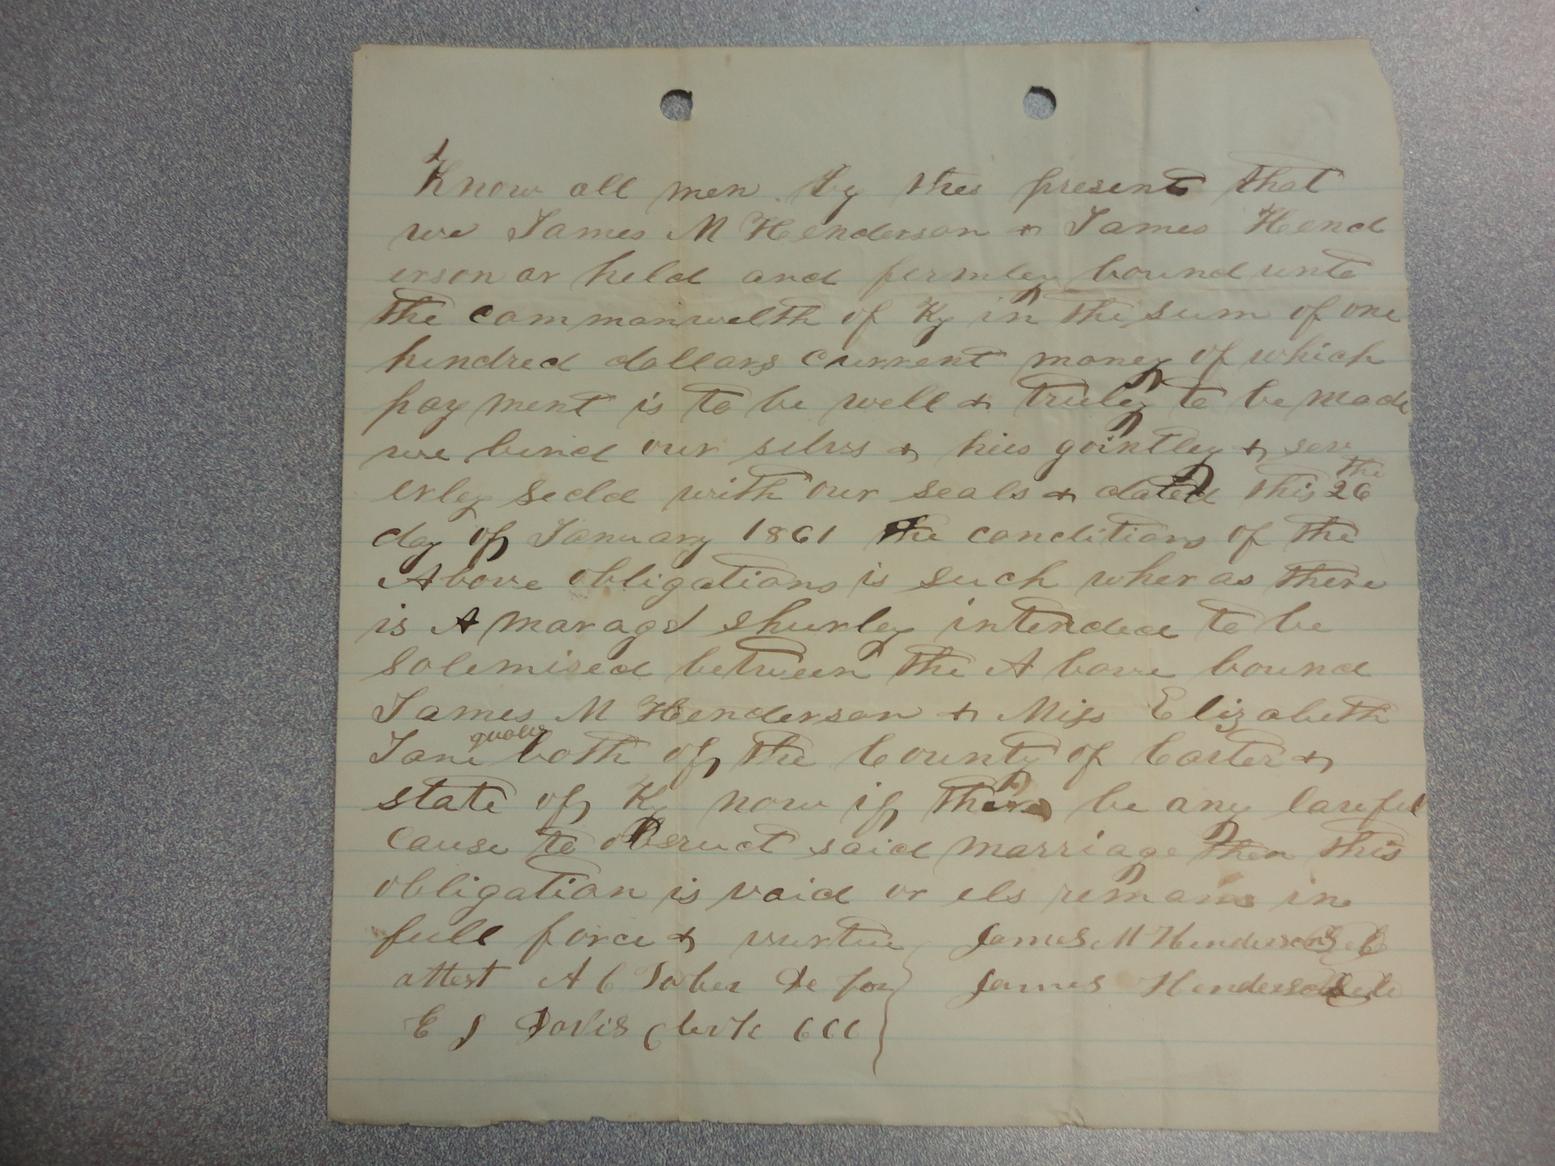 Know all men by thes present that
we James M Henderson & James Hend
erson ar held and fermley bound unto
the commonwelth of Ky in the sum of one
hundred dollars current money of which
pay ment is to be well & truley to be made
we bind our selvs & hies gointley & sev
erley seeld with our seals & dated this 26 the
day of January 1861 the conditions of the
Above obligations is such wher as there
is A marage shurley intended to be
solemised between the A bove bound
James M Henderson & Miss Elizabeth
Jane both of the County of Carter &
state of Ky now if there be any lawful
cause to obstruct said marriage then this
obligation is void or els remans in
full force & vurtue James M Henderson
attest A C Taber De for James Henderson
E J Davis Clerk CCC